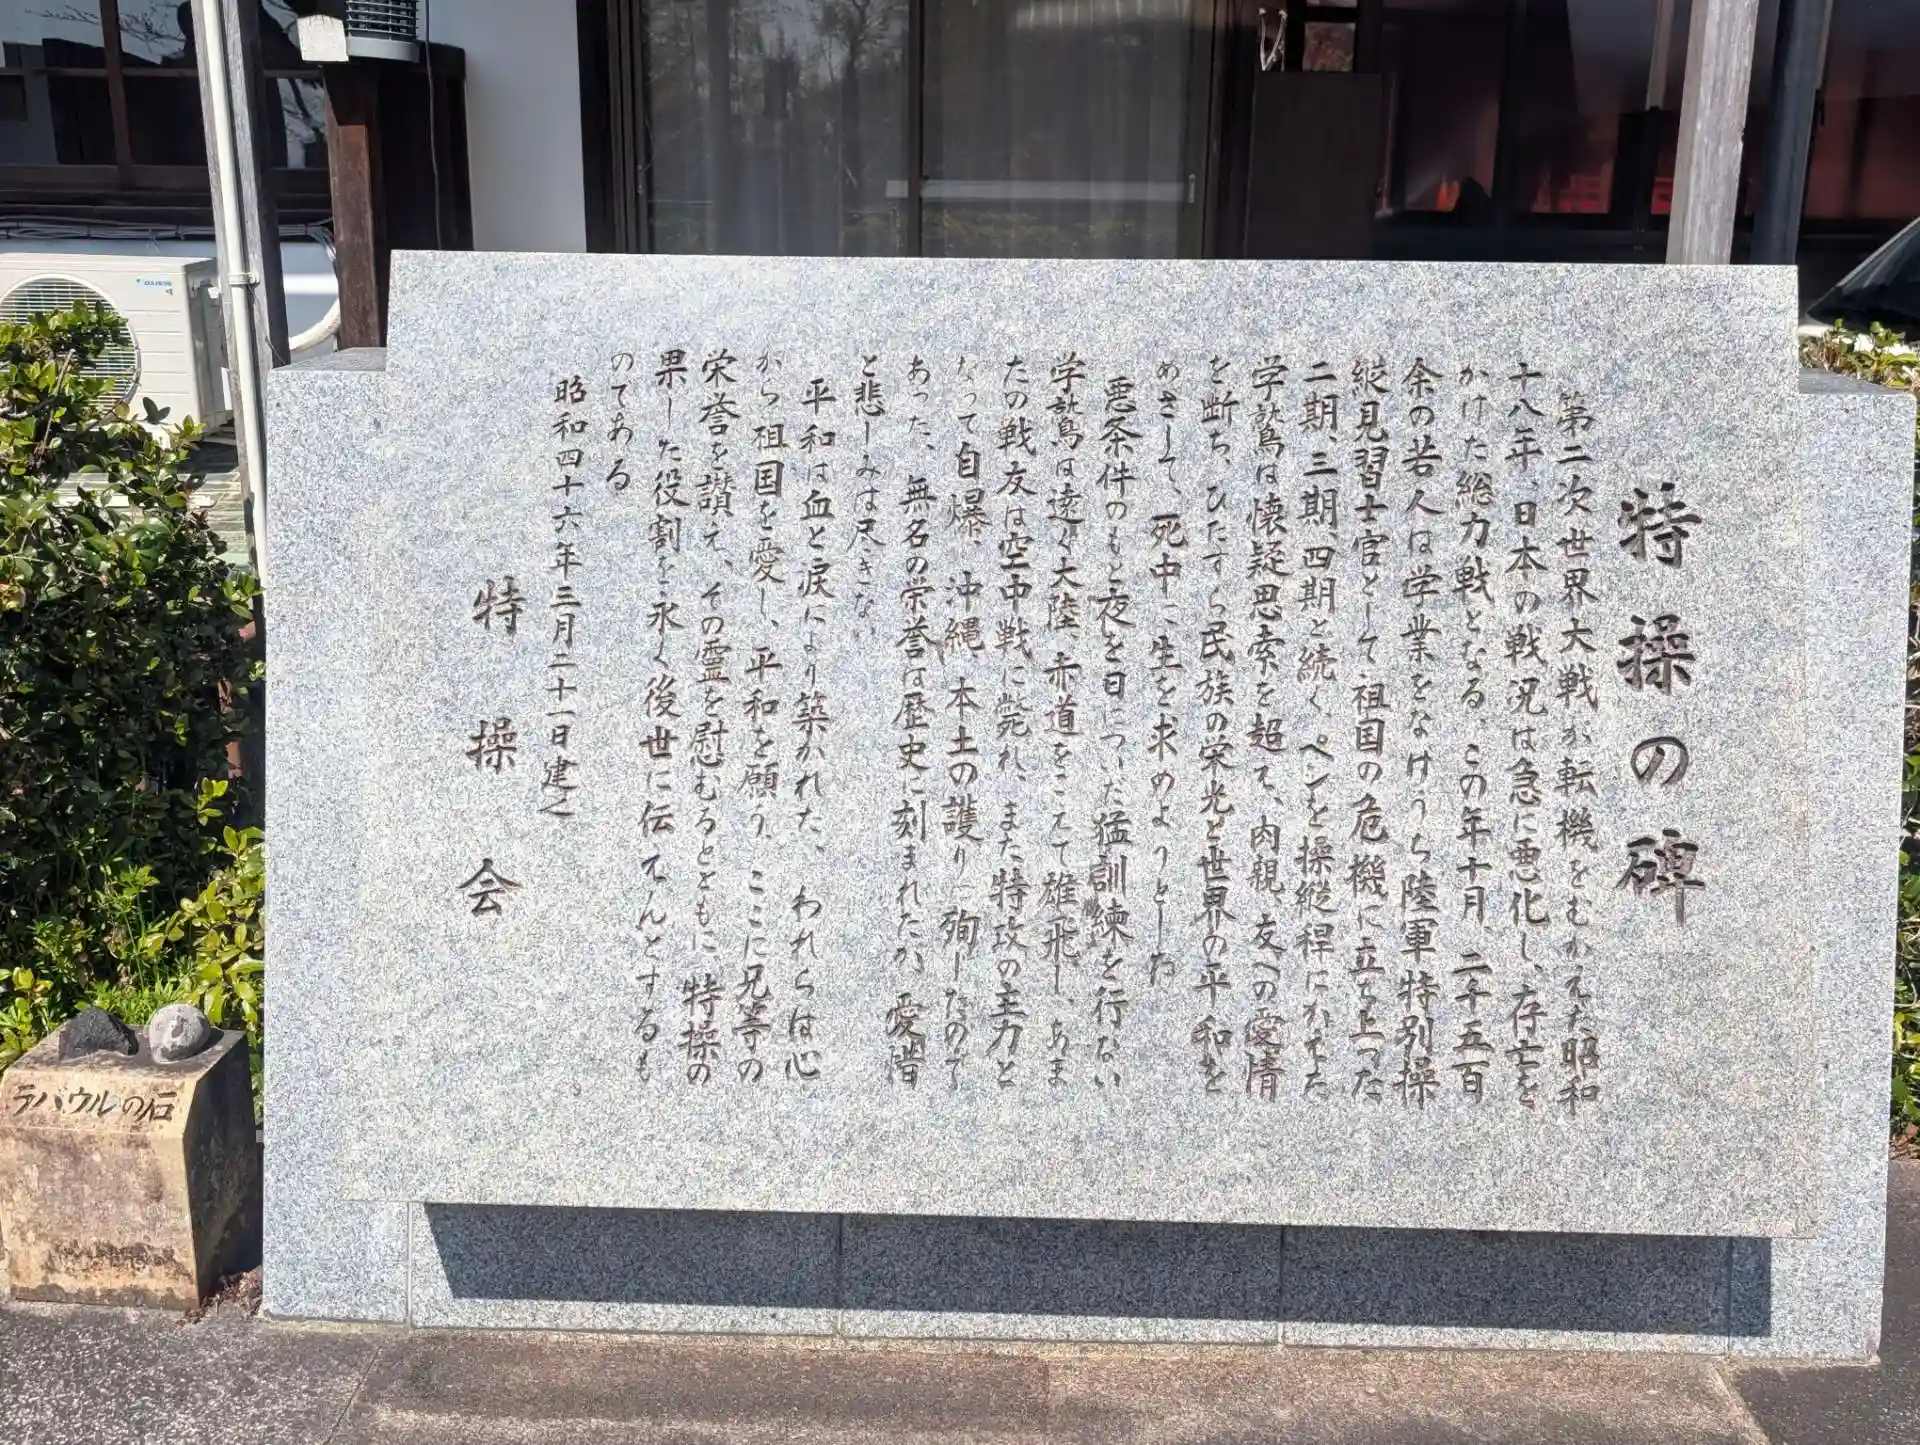 特操の碑
第二次世界大戦が転機をむかえた昭和
十八年、日本の戦況は急に悪化し、存亡を
かけた総力戦となる。この年十月、二千五百
余の若人は学業をなげうち陸軍特別操
縦見習士官として祖国の危機に立ち上った
二期、三期、四期と続く、ペンを操縦桿にかえた
学鷲は懐疑思索を超え、肉親、友への愛情
を断ち、ひたすら民族の栄光と世界の平和を
めざして、死中に生を求めようとした
悪条件のもと夜を日についだ猛訓練を行ない
学鷲は遠く大陸、赤道をこえて雄飛し、あま
たの戦友は空中戦に斃れ、また特攻の主力と
なって自爆、沖縄、本土の護りに殉したので
あった、無名の栄誉は歴史に刻まれたが、愛惜
と悲しみは尽きない
平和は血と涙により築かれた、われらは心
から祖国を愛し、平和を願う、ここに兄等の
栄誉を讃え、その霊を慰むるとともに、特操の
果した役割を永く後世に伝えんとするも
のである
昭和四十六年三月二十一日建之
特操会
ラバウルの石
DAIKIN